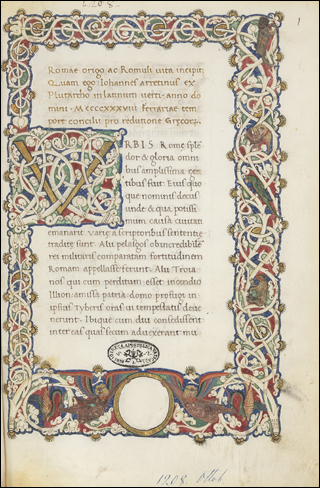 L. 208.
1
Romae origo ac Romuli vita incipit
Quam ego Iohannes arretinus ex
Plutarcho in latinum verti. anno do
mini. MCCCCXXXVIII Ferrariae tem
pore concilij pro reductione Grecorum
VRBIS. Rome splē
dor & gloria omni
bus amplissima gen
tibus fuit. Eius quo
que nominis decus
unde & qua potissi
mum causa civitati
emanarit varie a scriptoribus sententie
tradite sunt. Alii pelasgos ob incredibilē
rei militaris comparatam fortitudinem
Romam appellasse ferunt. Alii Troia
nos qui cum perditum esset incendio
Ilion: amissa patria domo profugi in
ipsius Tyberis oras vi tempestatis dela
ti erunt. Ibique cum diu consedissent
inter eas quas secum advexerant mu
1208. Ottob.